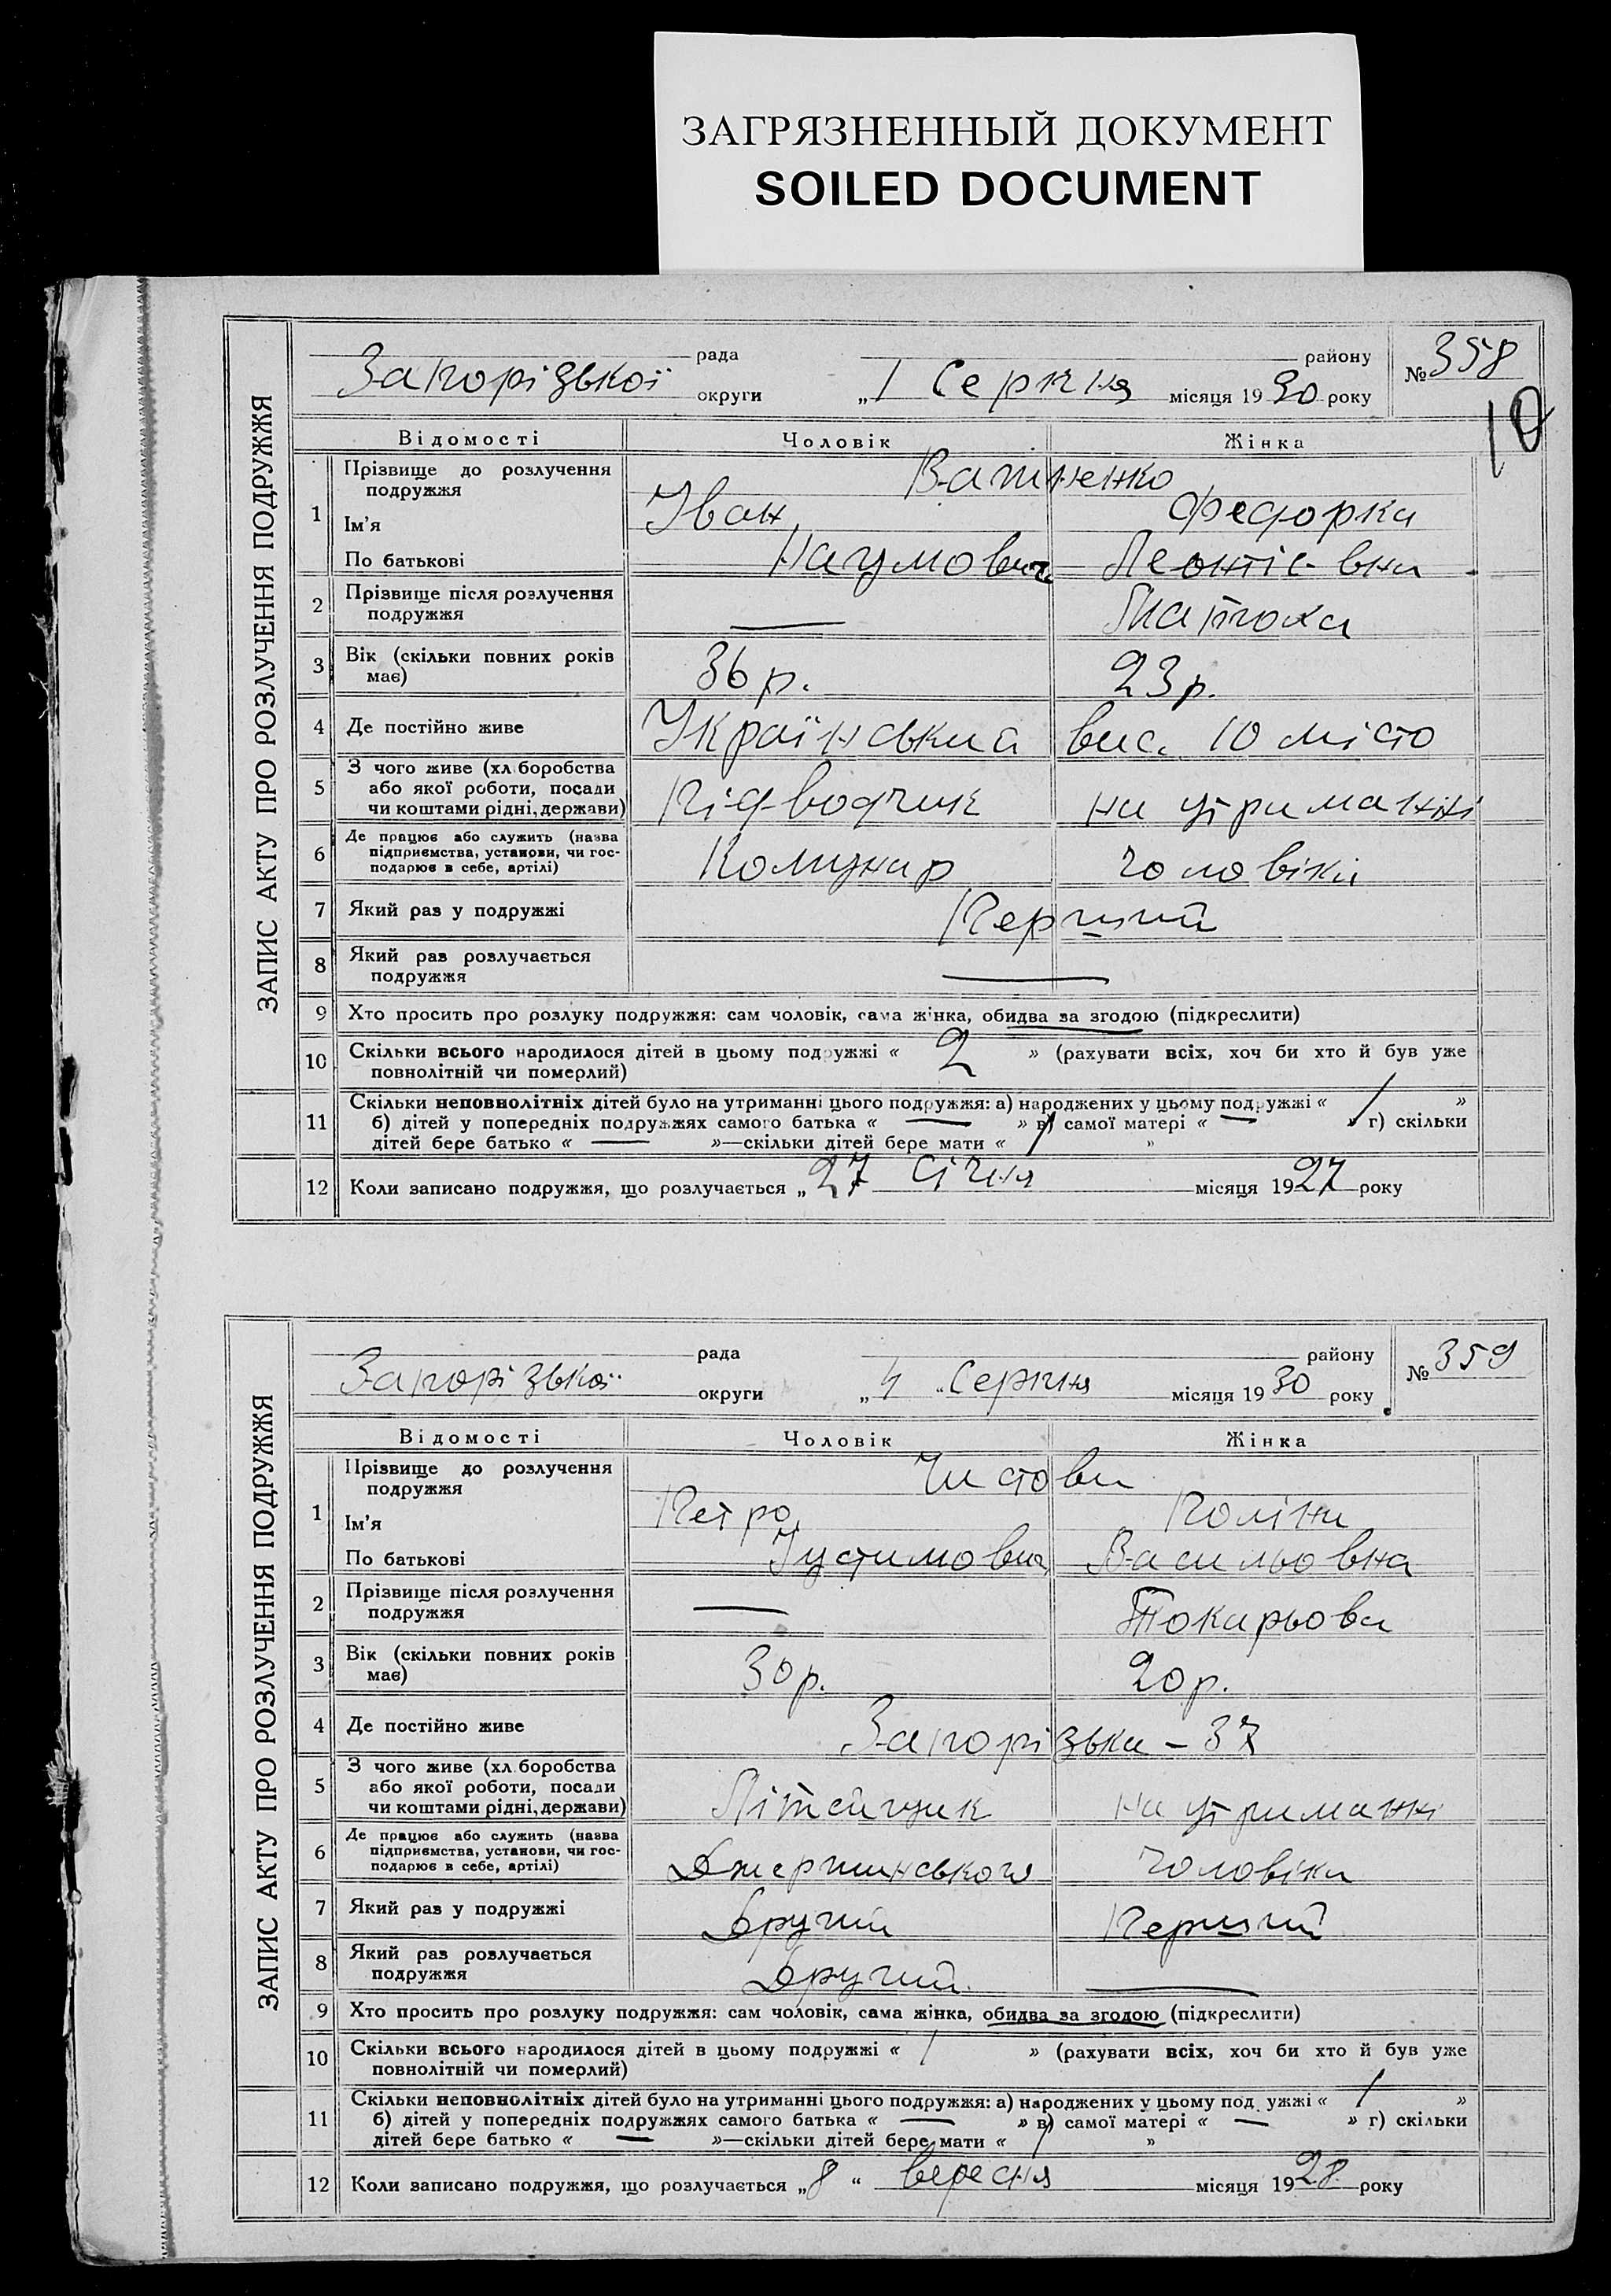 ЗАГРЯЗНЕННЫЙ ДОКУМЕНТ
SOILED DOCUMENT
ЗАПИС АКТУ ПРО РОЗЛУЧЕННЯ ПОДРУЖЖЯ
рада району № 358
Запорізької округи „1 Серпня місяця 1930 року
10
Відомості Чоловік Жінка
1 Прізвище до розлучення подружжя Ватченко
Ім'я Іван Федорка
По батькові Наумович Леонтіє-вна
2 Прізвище після розлучення
подружжя —
3 Вік (скільки повних років
має) 36 р. 23 р.
4 Де постійно живе Українська вис. 10 місто
5 З чого живе (хл.боробства
або якої роботи, посади
чи коштами рідні, держави) Підводчик на утриманні
6 Де працює або служить (назва
підприємства, установи, чи гос-
подарює в себе, артілі) Комунар чоловіка
7 Який раз у подружжі Перший
8 Який раз розлучається
подружжя —
9 Хто просить про розлуку подружжя: сам чоловік, сама жінка, обидва за згодою (підкреслити)
10 Скільки всього народилося дітей в цьому подружжі « 2 » (рахувати всіх, хоч би хто й був уже
повнолітній чи померлий)
11 Скільки неповнолітніх дітей було на утриманні цього подружжя: а) народжених у цьому подружжі « 1 »
б) дітей у попередніх подружжях самого батька « — » в) самої матері « — » г) скільки
дітей бере батько « — »—скільки дітей бере мати « 1 »
12 Коли записано подружжя, що розлучається „27 Січня місяця 1927 року
ЗАПИС АКТУ ПРО РОЗЛУЧЕННЯ ПОДРУЖЖЯ
рада району № 359
Запорізької округи „4 “ Серпня місяця 1930 року
Відомості Чоловік Жінка
1 Прізвище до розлучення
подружжя Чистови
Ім'я Петро Поліна
По батькові Іустимович Васильовна
2 Прізвище після розлучення
подружжя — Токарьова
3 Вік (скільки повних років
має) 30 р. 20 р.
4 Де постійно живе Запорізька – 37
5 З чого живе (хл.боробства
або якої роботи, посади
чи коштами рідні, держави) Літейщик на утриманні
6 Де працює або служить (назва
підприємства, установи, чи гос-
подарює в себе, артілі) Джержинського чоловіка
7 Який раз у подружжі Другий Перший
8 Який раз розлучається
подружжя Другий. —
9 Хто просить про розлуку подружжя: сам чоловік, сама жінка, обидва за згодою (підкреслити)
10 Скільки всього народилося дітей в цьому подружжі « 1 » (рахувати всіх, хоч би хто й був уже
повнолітній чи померлий)
11 Скільки неповнолітніх дітей було на утриманні цього подружжя: а) народжених у цьому под ужжі « 1 »
б) дітей у попередніх подружжях самого батька « — » в) самої матері « — » г) скільки
дітей бере батько « — »—скільки дітей бере мати « 1 »
12 Коли записано подружжя, що розлучається „8 “ вересня місяця 1928 року